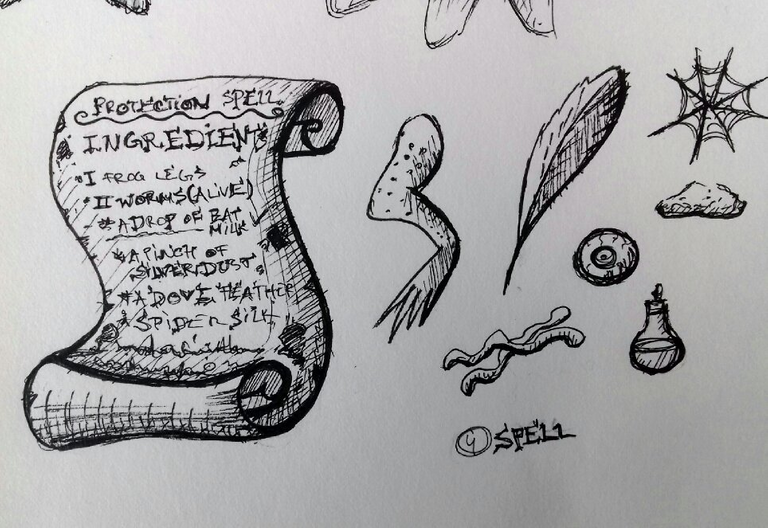 PROTECTION SPELL
INGREDIENTS
I FROG LEGS
II WORMS (ALIVE)
* A DROP OF BAT
MILK
* A PINCH OF
SILVER DUST
* A DOVE FEATHER
* SPIDER SILK
4 SPELL